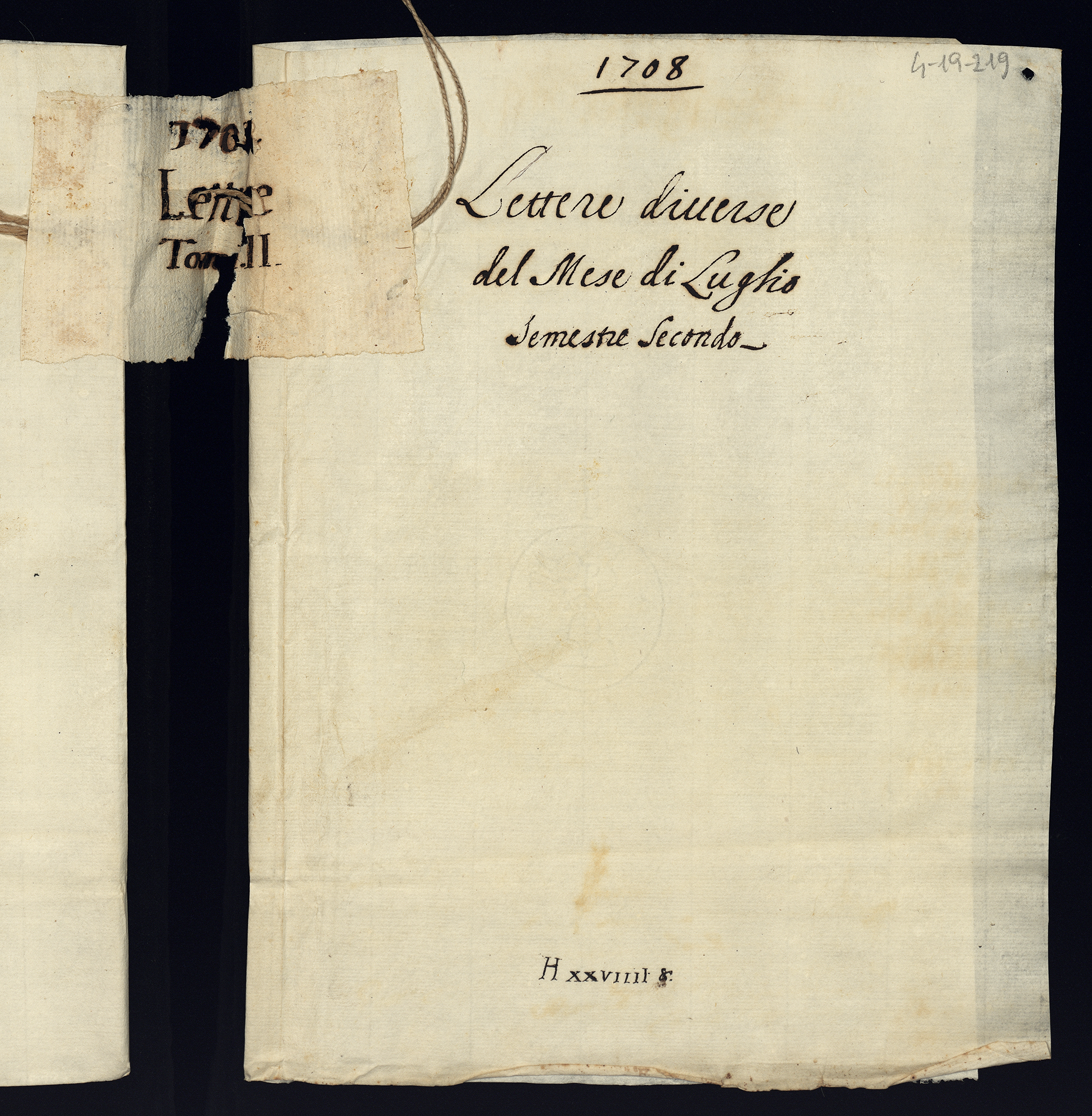 1708
4-19-219
Lettere diuerse
del Mese di Luglio
Semestre Secondo
H XXVIIII 8.
Tom. II.